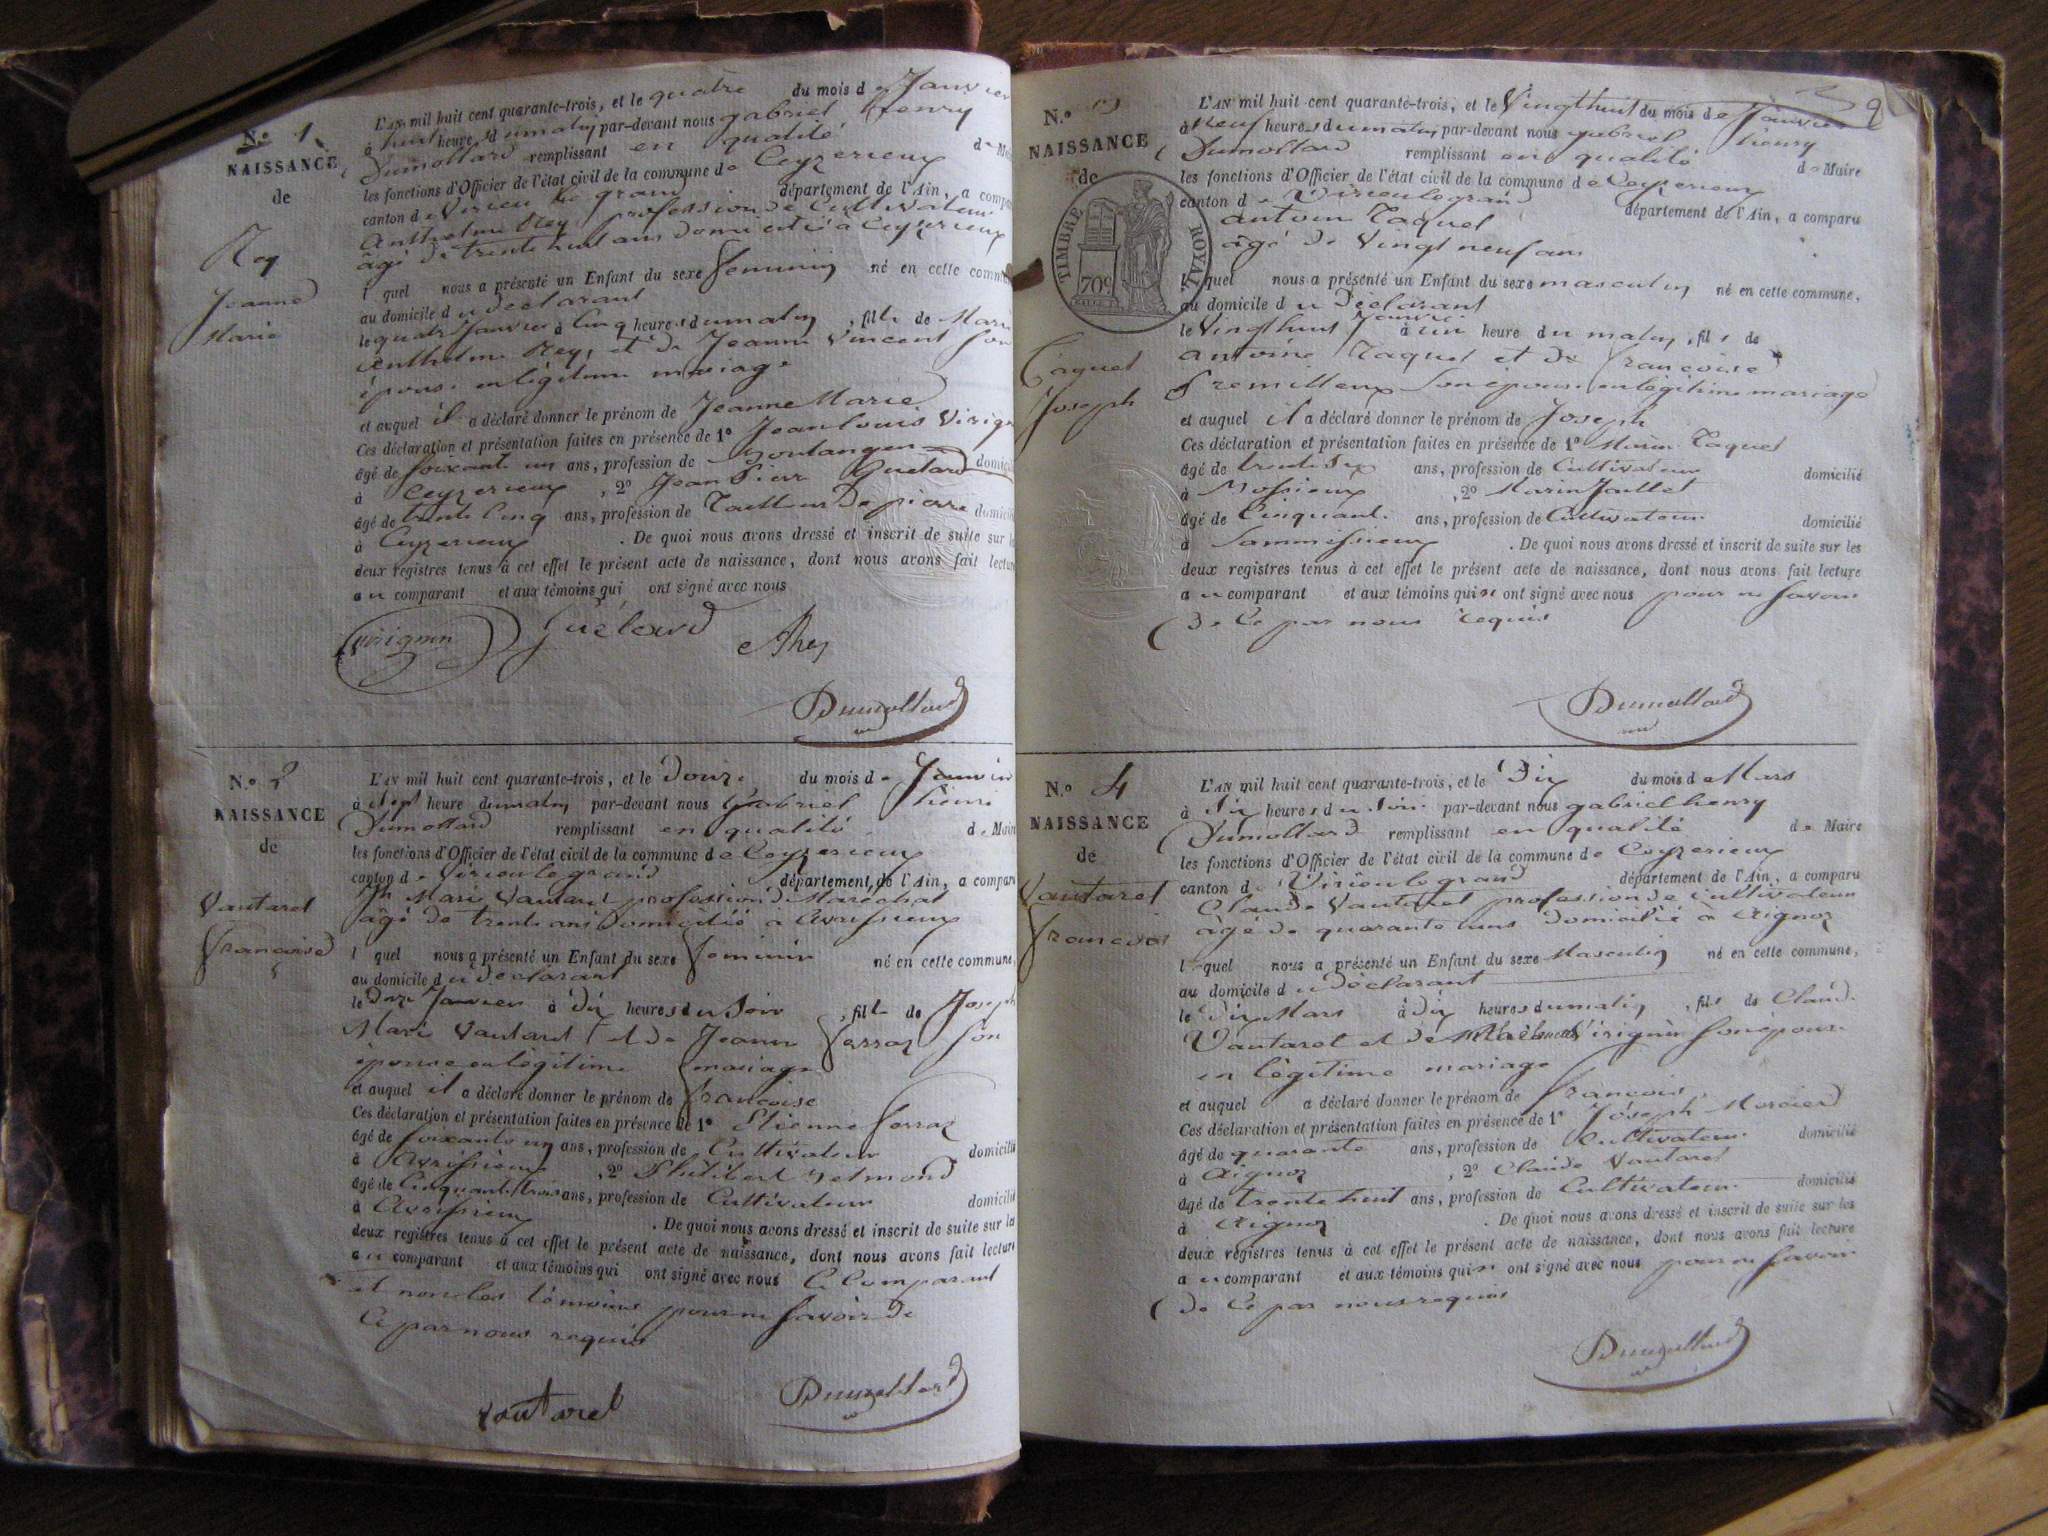 N.º 1
NAISSANCE
de
Rey
Jeanne
Marie
L'AN mil huit cent quarante-trois, et le quatre du mois de Janvier
à huit heures du matin par-devant nous gabriel henry
Dumollard remplissant en qualité de
les fonctions d'Officier de l'état civil de la commune de Ceyzerieux
canton de Virieu le grand département de l'Ain, a compar
Anthelme Rey profession de Cultivateur
âgé de trente huit ans domicilié à Ceyzerieux
l quel nous a présenté un Enfant du sexe feminin né en cette commune
au domicile du declarant
le quatre Janvier à Cinq heures du matin, fille de Marie
anthelme Rey, et de Jeanne Vincent son
épouse en légitime mariage
et auquel il a déclaré donner le prénom de Jeanne Marie
Ces déclaration et présentation faites en présence de 1º Jean Louis Virign
âgé de soixante un ans, profession de Boulanger domicil
à Ceyzerieux, 2º Jean Pierre Guelard
âgé de trente Cinq ans, profession de Tailleur De pierre domicil
à Ceyzerieux. De quoi nous avons dressé et inscrit de suite sur
deux registres tenus à cet effet le présent acte de naissance, dont nous avons fait lecture
au comparant et aux témoins qui ont signé avec nous
virignin Guélard Rey
Dumollard
N.º 2
NAISSANCE
de
Vautaret
françoise
L'AN mil huit cent quarante-trois, et le Douze du mois de Janvier
à sept heure du matin par-devant nous Gabriel henri
Dumollard remplissant en qualité de Maire
les fonctions d'Officier de l'état civil de la commune de Ceyzerieux
canton de Virieu le grand département de l'Ain, a comparu
Jh Marie Vautaret profession de Maréchal
âgé de trente ans Domicilié à avrissieux
l quel nous a présenté un Enfant du sexe feminin né en cette commune,
au domicile du declarant
le Douze Janvier à Dix heures du Soir, fille de Joseph
Marie Vautaret et de Jeanne ferraz son
épouse en légitime mariage
et auquel il a déclaré donner le prénom de françoise
Ces déclaration et présentation faites en présence de 1º Etienne ferraz
âgé de soixante un ans, profession de Cultivateur domicilié
à Avrissieux, 2º Philibert
âgé de Cinquante trois ans, profession de Cultivateur domicilié
à Avrissieux. De quoi nous avons dressé et inscrit de suite sur les
deux registres tenus à cet effet le présent acte de naissance, dont nous avons fait lecture
au comparant et aux témoins qui ont signé avec nous le Comparant
et non les témoins pour ne savoir de
Ce par nous requis
Vautaret Dumollard
N.º 3
NAISSANCE
de
TIMBRE ROYAL
70c
Taquet
Joseph
L'AN mil huit cent quarante-trois, et le Vingt huit du mois de Janvier
à Neuf heures du matin par-devant nous gabriel henry
Dumollard remplissant en qualité de Maire
les fonctions d'Officier de l'état civil de la commune de Ceyzerieux
canton de Virieu le grand département de l'Ain, a comparu
antoine Taquet
âgé de Vingt neuf ans
l quel nous a présenté un Enfant du sexe masculin né en cette commune,
au domicile du Déclarant
le Vingt huit Janvier à un heure du matin, fils de
antoine Taquet et de françoise
Premilleux son épouse en légitime mariage
et auquel il a déclaré donner le prénom de Joseph
Ces déclaration et présentation faites en présence de 1º Marin Taquet
âgé de trente six ans, profession de Cultivateur domicilié
à Mossieux, 2º Marin Jaillet
âgé de Cinquante ans, profession de Cultivateur domicilié
à Sammessieux. De quoi nous avons dressé et inscrit de suite sur les
deux registres tenus à cet effet le présent acte de naissance, dont nous avons fait lecture
au comparant et aux témoins qui n ont signé avec nous pour ne savoir
de Ce par nous requis
Dumollard
N.º 4
NAISSANCE
de
Vautaret
françois
L'AN mil huit cent quarante-trois, et le Dix du mois de Mars
à Six heures du Soir par-devant nous gabriel henry
Dumollard remplissant en qualité de Maire
les fonctions d'Officier de l'état civil de la commune de Ceyzerieux
canton de Virieu le grand département de l'Ain, a comparu
Claude Vautaret profession de Cultivateur
âgé de quarante ans domicilié a aignoz
lequel nous a présenté un Enfant du sexe Masculin né en cette commune,
au domicile du Déclarant
le Dix Mars à Dix heures du matin, fils de Claude
Vautaret et de Virignin son épouse
en légitime mariage
et auquel a déclaré donner le prénom de françois
Ces déclaration et présentation faites en présence de 1º Joseph Mercier
âgé de quarante ans, profession de Cultivateur domicilié
à aignoz, 2º Claude Vautaret
âgé de trente huit ans, profession de Cultivateur domicilié
à aignoz. De quoi nous avons dressé et inscrit de suite sur les
deux registres tenus à cet effet le présent acte de naissance, dont nous avons fait lecture
au comparant et aux témoins qui n ont signé avec nous pour ne savoir
de Ce par nous requis
Dumollard